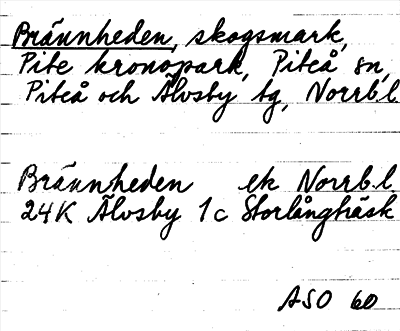 Brännheden, skogsmark,
Pite kronopark, Piteå sn,
Piteå och Älvsby tg, Norrb.l.
Brännheden ek Norrb.l.
24K Älvsby 1c Storlångträsk
ASO 60